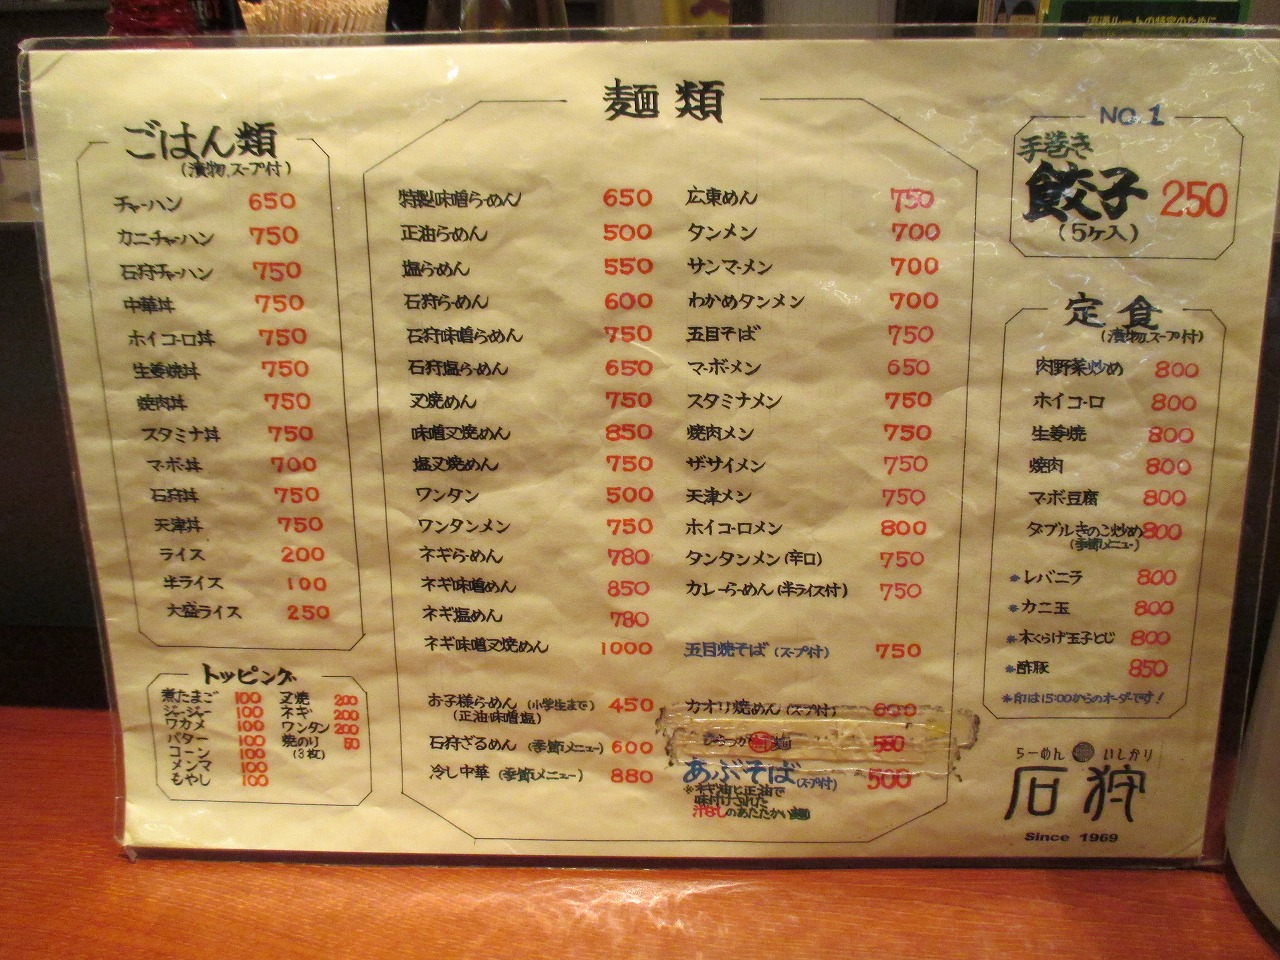 運過ルートの特定のために
ごはん類
(漬物、スープ付)
チャーハン 650
カニチャーハン 750
石狩チャーハン 750
中華丼 750
ホイコーロ丼 750
生姜焼丼 750
焼肉丼 750
スタミナ丼 750
マーボー丼 700
石狩丼 750
天津丼 750
ライス 200
半ライス 100
大盛ライス 250
トッピング
煮たまご 100
ジージー 100
ワカメ 100
バター 100
コーン 100
メンマ 100
もやし 100
叉焼 200
ネギ 200
ワンタン 200
焼のり 50
(3枚)
麺類
特製味噌らーめん 650
正油らーめん 500
塩らーめん 550
石狩らーめん 600
石狩味噌らーめん 750
石狩塩らーめん 650
叉焼めん 750
味噌叉焼めん 850
塩叉焼めん 750
ワンタン 500
ワンタンメン 750
ネギらーめん 780
ネギ味噌めん 850
ネギ塩めん 780
ネギ味噌叉焼めん 1000
お子様らーめん (小学生まで) 450
(正油・味噌・塩)
石狩ざるめん (季節メニュー) 600
冷し中華 (季節メニュー) 880
広東めん 750
タンメン 700
サンマーメン 700
わかめタンメン 700
五目そば 750
マーボーメン 650
スタミナメン 750
焼肉メン 750
ザーサイメン 750
天津メン 750
ホイコーロメン 800
タンタンメン (辛口) 750
カレーらーめん (半ライス付) 750
五目焼そば (スープ付) 750
カオリ焼めん (スープ付) 600
麺
あぶそば (スープ付) 500
※ネギ油と正油で
味付けされた
汁なしのあたたかい麺
NO.1
手巻き
餃子 250
(5ケ入)
定食
(漬物、スープ付)
肉野菜炒め 800
ホイコーロ 800
生姜焼 800
焼肉 800
マーボ豆腐 800
ダブルきのこ炒め 800
(季節メニュー)
※レバニラ 800
※カニ玉 800
※木くらげ玉子とじ 800
※酢豚 850
※印は15:00からのオーダーです!
らーめん いしかり
石狩
Since 1969